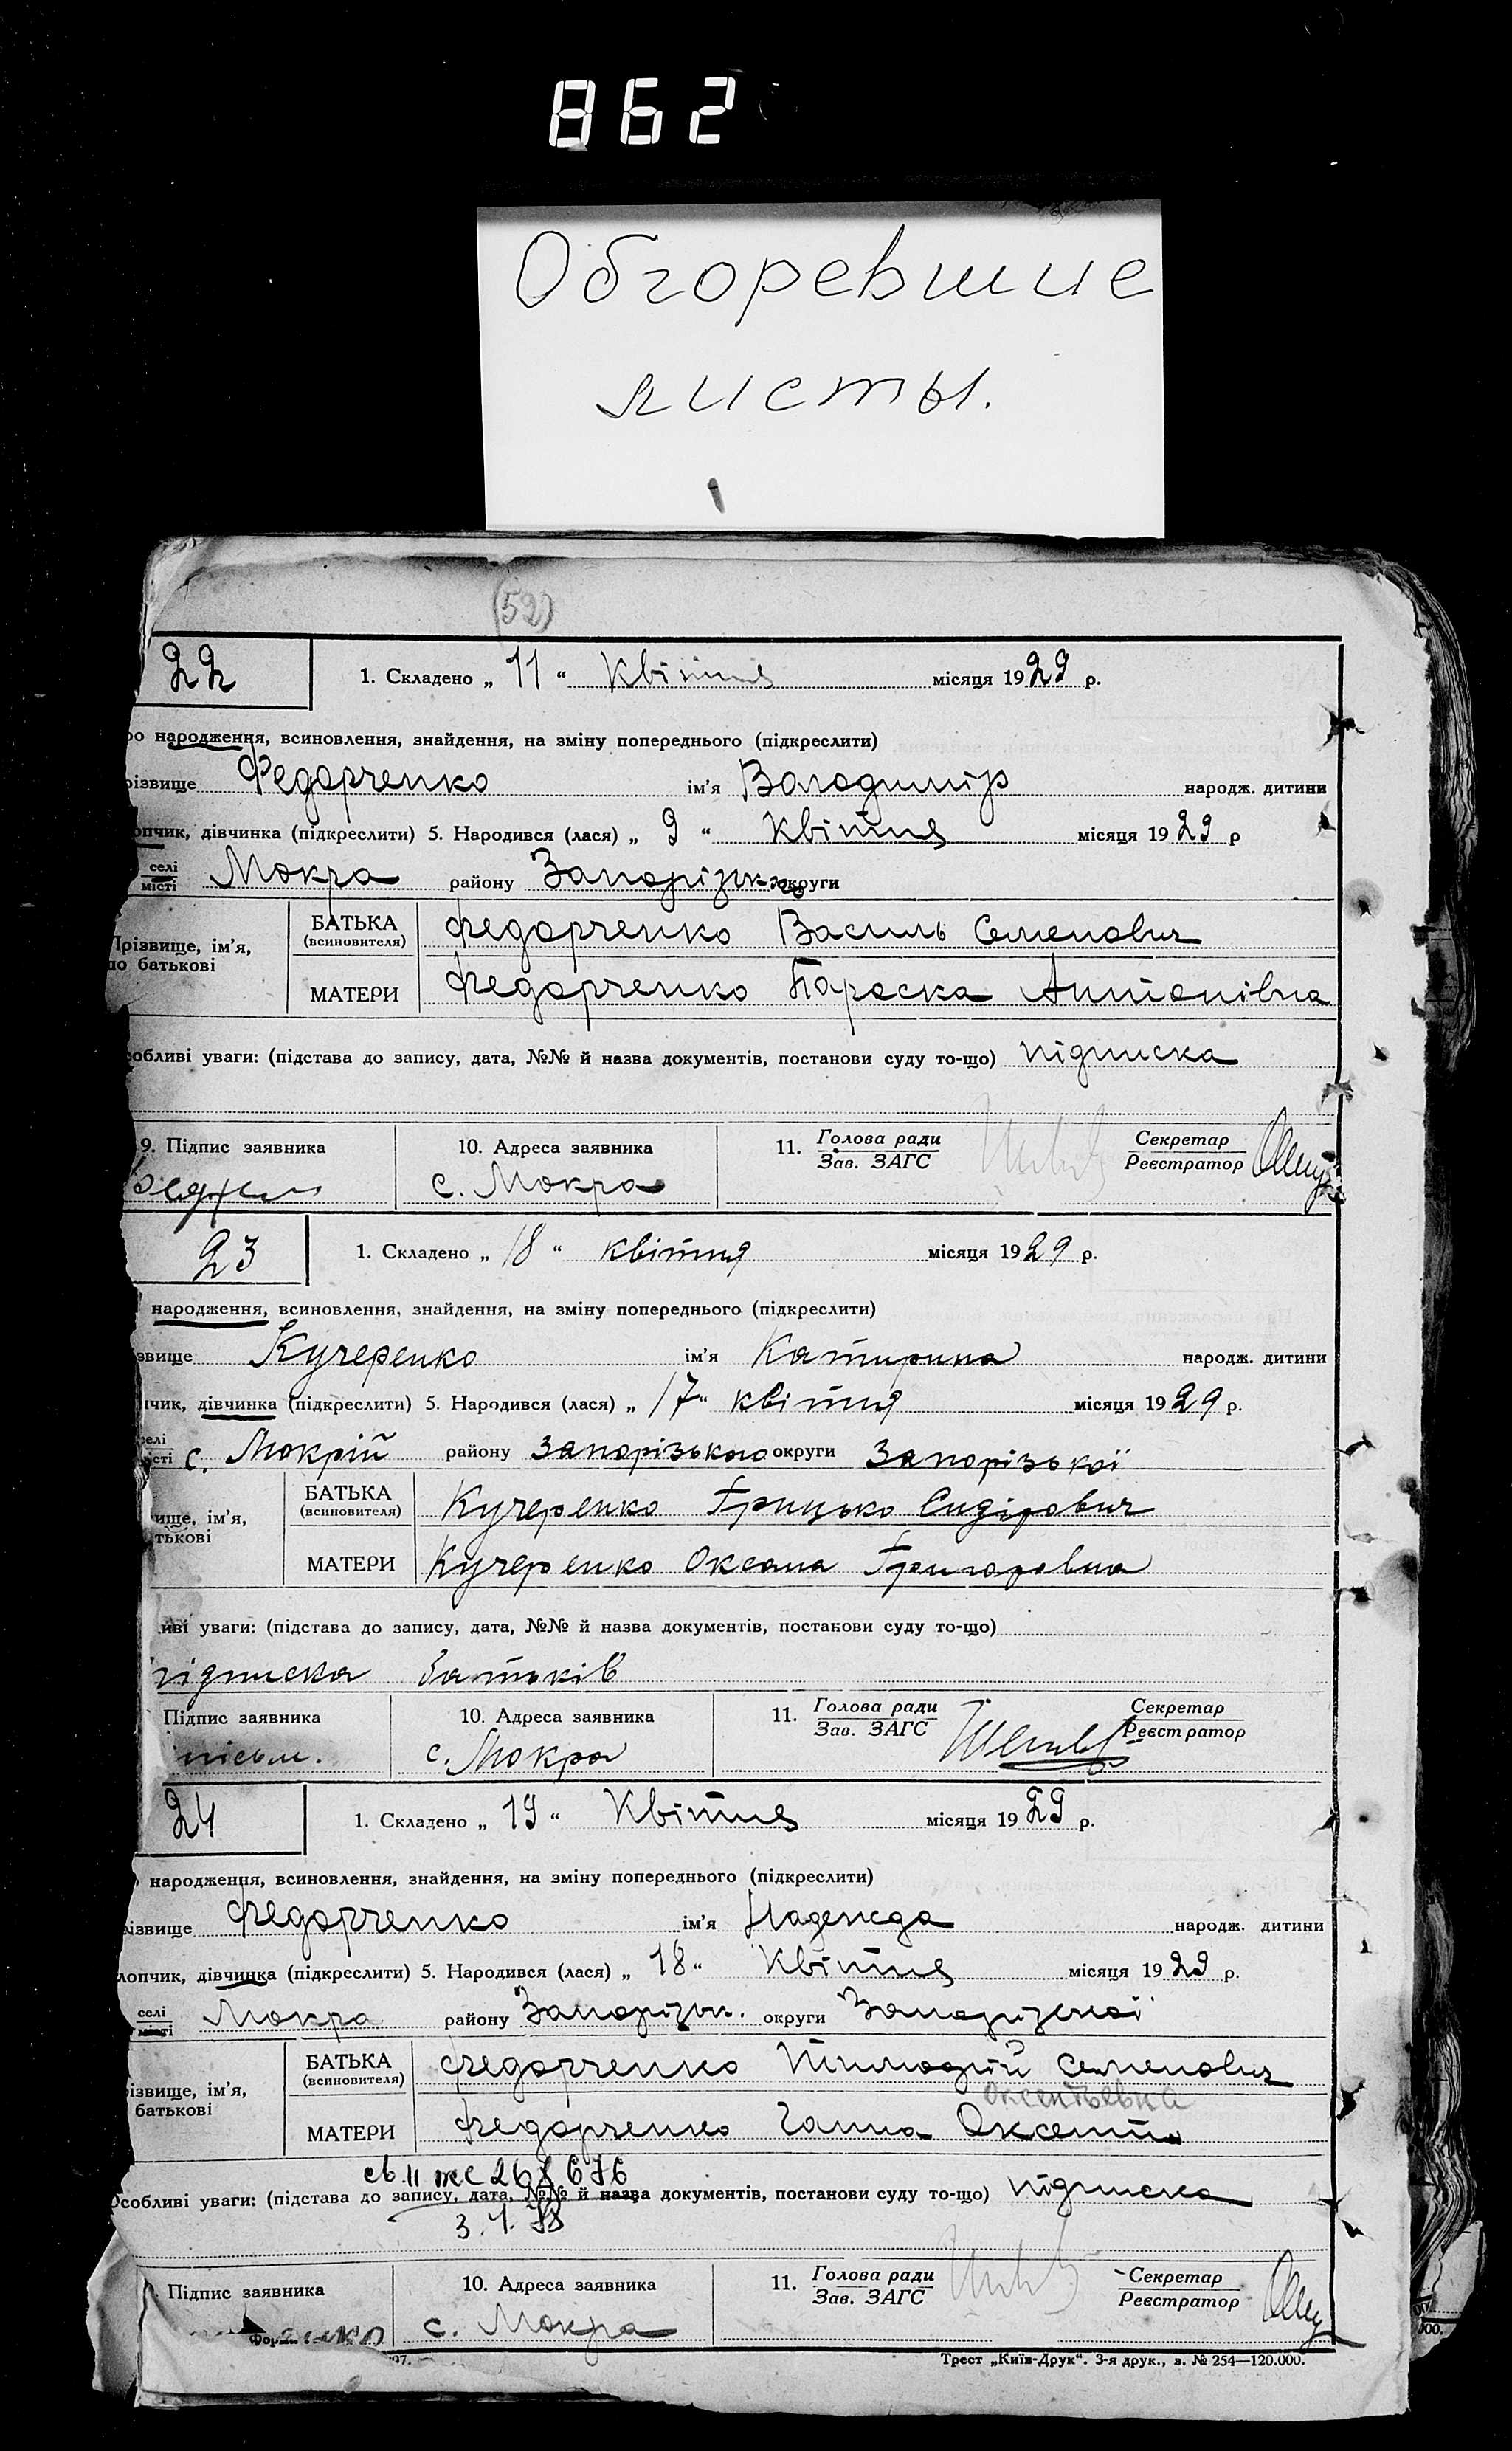 862
Обгоревшие
листы.
(52)
22
1. Складено „ 11 “ Квітня місяця 1929 р.
ро народження, всиновлення, знайдення, на зміну попереднього (підкреслити)
різвище Федорченко ім’я Володимір народж. дитини
опчик, дівчинка (підкреслити) 5. Народився (лася) „ 9 “ Квітня місяця 1929 р
селі
місті Мокра району Запорізько округи
Прізвище, ім’я,
по батькові
БАТЬКА
(всиновителя) Федорченко Василь Семенович
МАТЕРИ Федорченко Параска Антонівна
собливі уваги: (підстава до запису, дата, №№ й назва документів, постанови суду то-що) підписка
9. Підпис заявника 10. Адреса заявника 11. Голова ради
Зав. ЗАГС Секретар
Реєстратор
с. Мокра
23
1. Складено „ 18 “ квітня місяця 1929 р.
народження, всиновлення, знайдення, на зміну попереднього (підкреслити)
звище Кучеренко ім’я Катирина народж. дитини
пчик, дівчинка (підкреслити) 5. Народився (лася) „ 17 “ квітня місяця 1929 р.
селі
істі с. Мокрій району Запорізького округи Запорізької
ище, ім’я,
тькові
БАТЬКА
(всиновителя) Кучеренко Грицько Сидірович
МАТЕРИ Кучеренко Оксана Григоровна
иві уваги: (підстава до запису, дата, №№ й назва документів, постанови суду то-що)
підписка батьків
Підпис заявника 10. Адреса заявника 11. Голова ради
Зав. ЗАГС Секретар
Реєстратор
с. Мокра
24
1. Складено „ 19 “ Квітня місяця 1929 р.
народження, всиновлення, знайдення, на зміну попереднього (підкреслити)
різвище Федорченко ім’я Надежда народж. дитини
лопчик, дівчинка (підкреслити) 5. Народився (лася) „ 18 “ Квітня місяця 1929 р.
селі
місті Мокра району Запорізьк. округи Запорізської
різвище, ім’я,
батькові
БАТЬКА
(всиновителя) Федорченко Тімофій Семенович
Оксентьевна
МАТЕРИ Федорченко Ганна Оксентів
св. II же 268676
Особливі уваги: (підстава до запису, дата, №№ й назва документів, постанови суду то-що) підписка
Підпис заявника 10. Адреса заявника 11. Голова ради
Зав. ЗАГС Секретар
Реєстратор
с. Мокра
Трест „Київ-Друк“. 3-я друк., з. № 254—120.000.